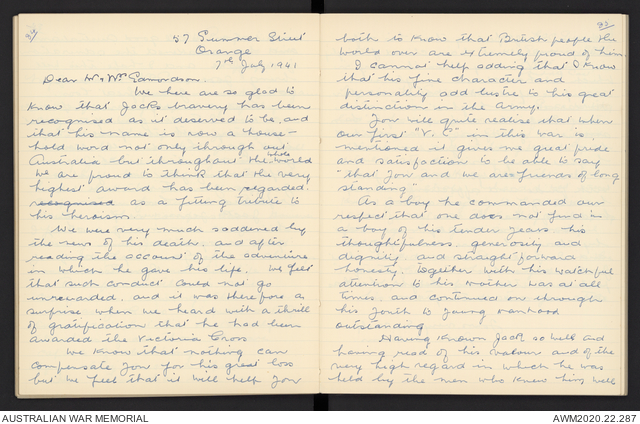 57 Summer Street
Orange
7th July 1941
Dear Mr & Mrs Edmondson.
We here are so glad to
know that Jacks bravery has been
recognised as it deserved to be, and
that his name is now a house-
hold word not only through out
Australia but throughout the whole world
we are proud to think that the very
highest award has been regarded.
recognised as a fitting tribute to
his heroism.
We were very much saddened by
the news of his death. and after
reading the account of the adventure
in which he gave his life. We felt
that such conduct could not go
unrewarded. and it was therefore a
surprise when we heard with a thrill
of gratification that he had been
awarded the Victoria Cross
We know that nothing can
compensate you for his great loss
but we feel that it will help you
both to know that British people the
world over are extremely proud of him.
I cannot help adding that I know
that his fine character and
personality add lustre to his great
distinction in the Army.
You will quite realise that when
our first "V.C" in this war is
mentioned it gives me great pride
and satisfaction to be able to say
"that you and we are friends of long
standing"
As a boy he commanded our
respect that one does not find in
a boy of his tender years his
thoughtfulness, generosity and
dignity and straight forward
honesty. together with his watchful
attention to his mother was at all
times. and continued on through
his youth to young manhood
outstanding
Having known Jack so well and
having read of his valour and of the
very high regard in which he was
held by the men who knew him well
AUSTRALIAN WAR MEMORIAL
AWM2020.22.287